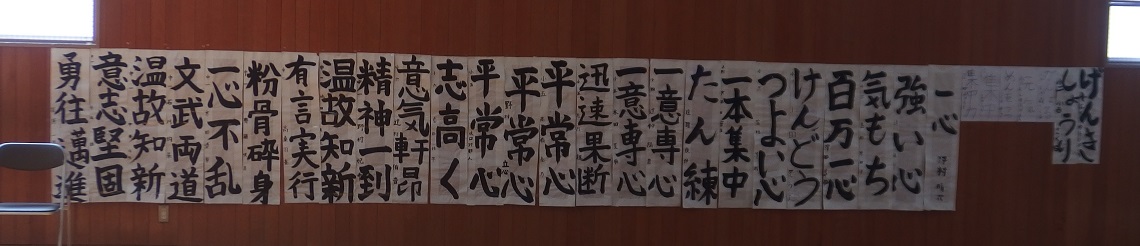 しょうり
一心
強い心
気もち
百万一心
けんどう
つよい心
一本集中
たん練
一意専心
一意専心
迅速果断
平常心
平常心
平常心
志高く
意気軒昂
精神一到
温故知新
有言実行
粉骨砕身
一心不乱
文武両道
温故知新
意志堅固
勇往邁進